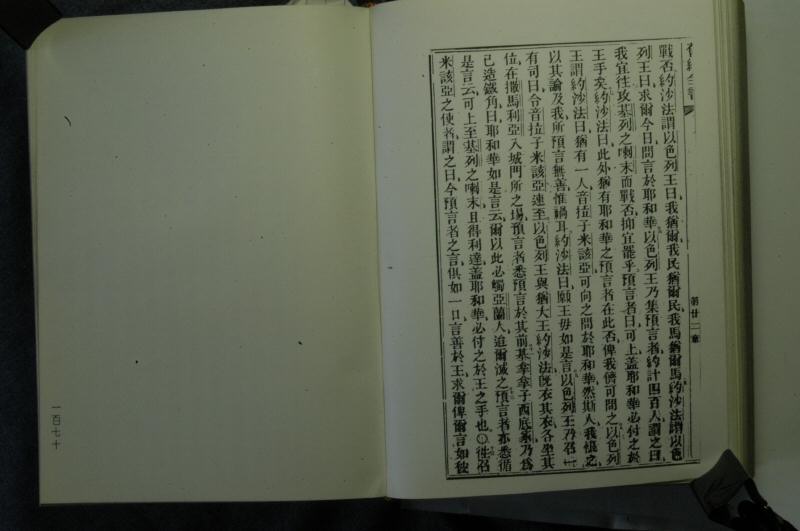 舊約全書
第廿二章
戰否約沙法謂以色列王曰我猶爾我民猶爾民我馬猶爾馬約沙法謂以色
列王曰求爾今日問言於耶和華以色列王乃集預言者約計四百人謂之曰
我宜往攻基列之喇末而戰否抑宜罷乎預言者曰可上蓋耶和華必付之於
王手矣約沙法曰此外猶有耶和華之預言者在此否俾我儕可問之以色列
王謂約沙法曰猶有一人音拉子米該亞可向之問於耶和華然斯人我恨之
以其論及我所預言無善惟禍耳約沙法曰願王毋如是言以色列王乃召一
有司曰令音拉子米該亞速至以色列王與猶大王約沙法旣衣其衣各坐其
位在撒馬利亞入城門所之場預言者悉預言於其前基拿拿子西底家乃爲
己造鐵角曰耶和華如是言云爾以此必觸亞蘭人迨爾滅之預言者亦悉循
是言云可上至基列之喇末且得利達蓋耶和華必付之於王之手也〇徃召
米該亞之使者謂之曰今預言者之言俱如一口言善於王求爾俾爾言如彼
一百七十